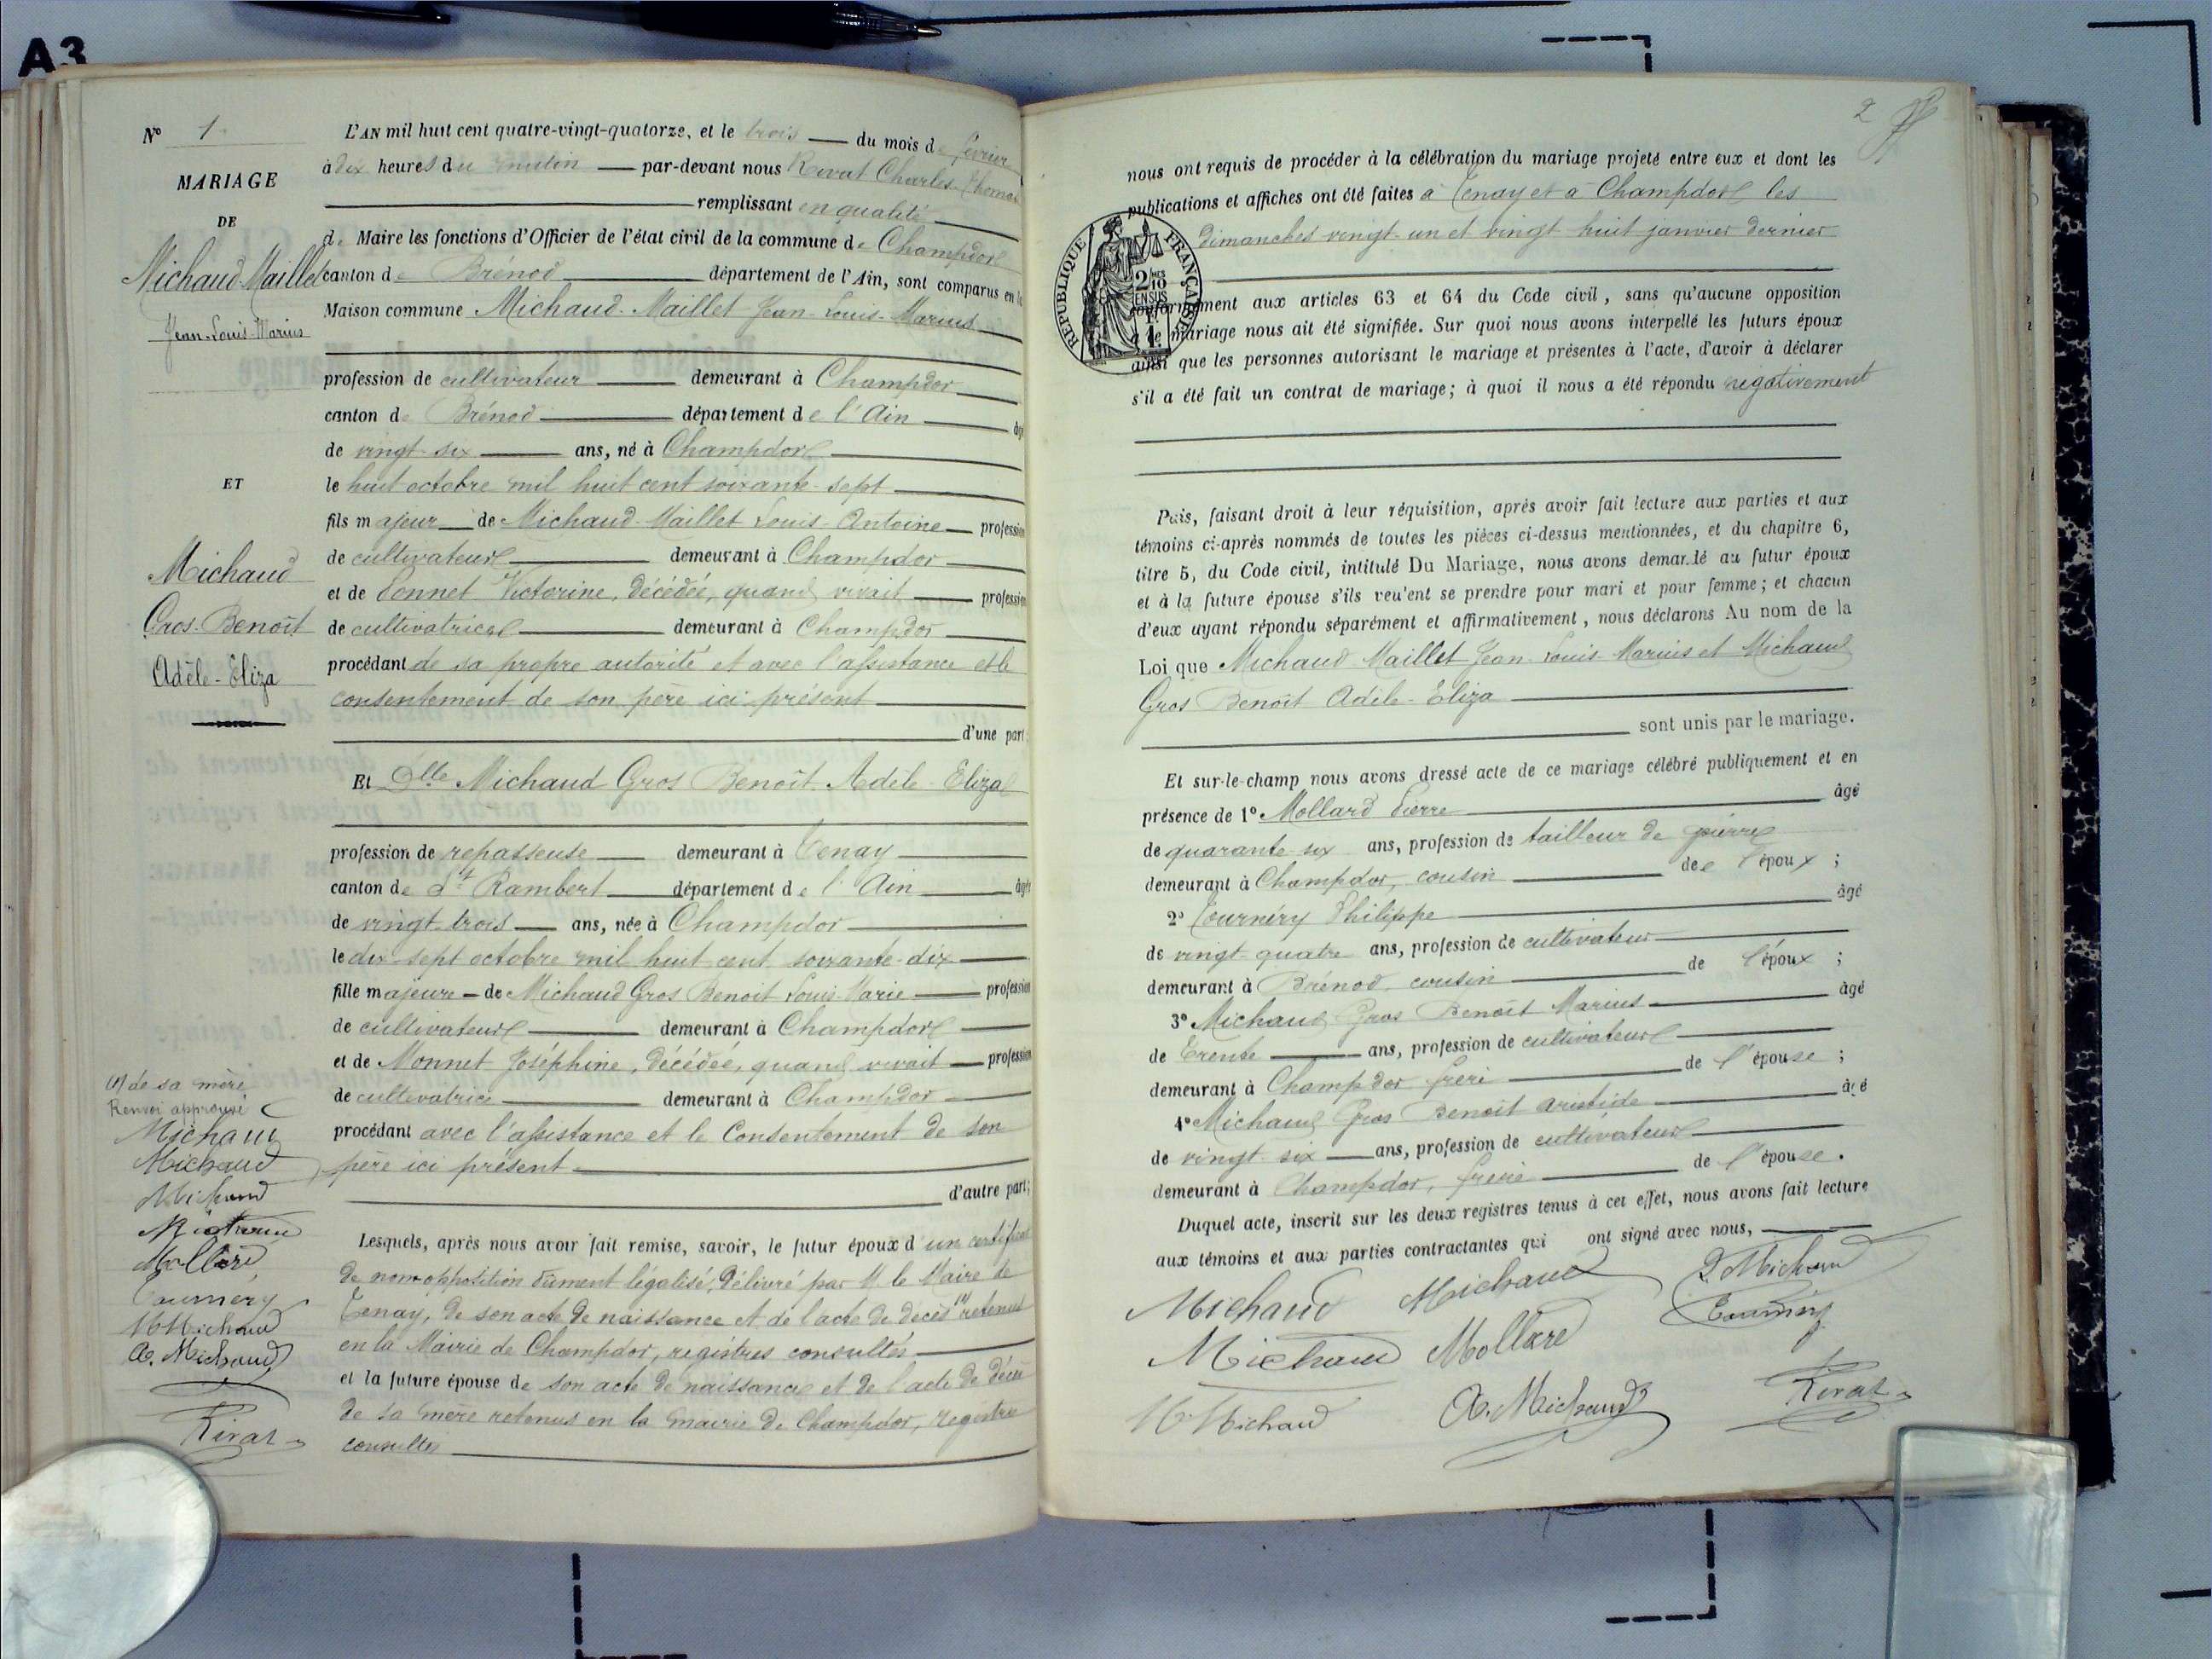 A3
N° 1
MARIAGE
DE
Michaud-Maillet
Jean-Louis-Marius
ET
Michaud
Gros-Benoît
Adèle-Eliza
(1) de sa mère
Renvoi approuvé
Michaud
Michaud
Michaud
Michaud
Mollard
Tournery
M Michaud
A. Michaud
Rivat
L'AN mil huit cent quatre-vingt-quatorze, et le trois du mois de février
à dix heures du matin par-devant nous Rivat Charles Thomas
remplissant en qualité
de Maire les fonctions d'Officier de l'état civil de la commune de Champdor
canton de Brénod département de l'Ain, sont comparus en la
Maison commune Michaud-Maillet Jean-Louis-Marius
profession de cultivateur demeurant à Champdor
canton de Brénod département de l'Ain âgé
de vingt-six ans, né à Champdor
le huit octobre mil huit cent soixante-sept
fils majeur de Michaud-Maillet Louis-Antoine profession
de cultivateur demeurant à Champdor
et de Victorine, décédée, quand vivait profession
de cultivatrice demeurant à Champdor
procédant de sa propre autorité et avec l'assistance et le
consentement de son père ici présent
d'une part;
Et Dlle Michaud Gros Benoît Adèle-Eliza
profession de repasseuse demeurant à Tenay
canton de St Rambert département de l'Ain âgée
de vingt-trois ans, née à Champdor
le dix-sept octobre mil huit cent soixante-dix
fille majeure de Michaud Gros Benoit Louis Marie profession
de cultivateur demeurant à Champdor
et de Monnet Joséphine, décédée, quand vivait profession
de cultivatrice demeurant à Champdor
procédant avec l'assistance et le Consentement de son
père ici présent
d'autre part;
Lesquels, après nous avoir fait remise, savoir, le futur époux d'un certificat
de non-opposition dûment légalisé, délivré par M. le Maire de
Tenay, de son acte de naissance et de l'acte de décès (1) retenus
en la Mairie de Champdor, registres consultés
et la future épouse de son acte de naissance et de l'acte de décès
de sa mère retenus en la mairie de Champdor, registres
consultés
2
nous ont requis de procéder à la célébration du mariage projeté entre eux et dont les
publications et affiches ont été faites à Tenay et à Champdor les
dimanches vingt-un et vingt huit janvier dernier
RÉPUBLIQUE FRANÇAISE
2/10 EN SUS
conformément aux articles 63 et 64 du Code civil, sans qu'aucune opposition
à ce mariage nous ait été signifiée. Sur quoi nous avons interpellé les futurs époux
ainsi que les personnes autorisant le mariage et présentes à l'acte, d'avoir à déclarer
s'il a été fait un contrat de mariage; à quoi il nous a été répondu négativement
Puis, faisant droit à leur réquisition, après avoir fait lecture aux parties et aux
témoins ci-après nommés de toutes les pièces ci-dessus mentionnées, et du chapitre 6,
titre 5, du Code civil, intitulé Du Mariage, nous avons demandé au futur époux
et à la future épouse s'ils veulent se prendre pour mari et pour femme; et chacun
d'eux ayant répondu séparément et affirmativement, nous déclarons Au nom de la
Loi que Michaud Maillet Jean-Louis-Marius et Michaud
Gros Benoît Adèle-Eliza
sont unis par le mariage.
Et sur-le-champ nous avons dressé acte de ce mariage célébré publiquement et en
présence de 1° Mollard Pierre âgé
de quarante-six ans, profession de tailleur de pierre
demeurant à Champdor, cousin de l'époux ;
2° Tournéry Philippe âgé
de vingt-quatre ans, profession de cultivateur
demeurant à Brénod, cousin de l'époux ;
3° Michaud Gros Benoît Marius âgé
de Trente ans, profession de cultivateur
demeurant à Champdor frère de l'épouse ;
4° Michaud Gros Benoît aristide âgé
de vingt-six ans, profession de cultivateur
demeurant à Champdor, frère de l'épouse.
Duquel acte, inscrit sur les deux registres tenus à cet effet, nous avons fait lecture
aux témoins et aux parties contractantes qui ont signé avec nous,
Michaud Michaud L Michaud
Michaud Mollard Tournéry
M Michaud A. Michaud Rivat